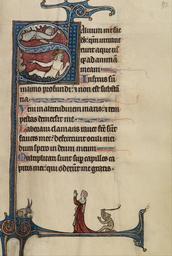 aluum me fac
deus qm intraue
runt aque usq
q ad animam
meam
Infixus sum
in limo profundi: et non est substan
tia
Veni in altitudinem maris: et tem
pestas demersit me
Laboraui clamans rauce facte sunt
fauces mee: defecerunt oculi mei
dum spero in deum meum
Multiplicati sunt super capillos ca
pitis mei: qui oderunt me gratis